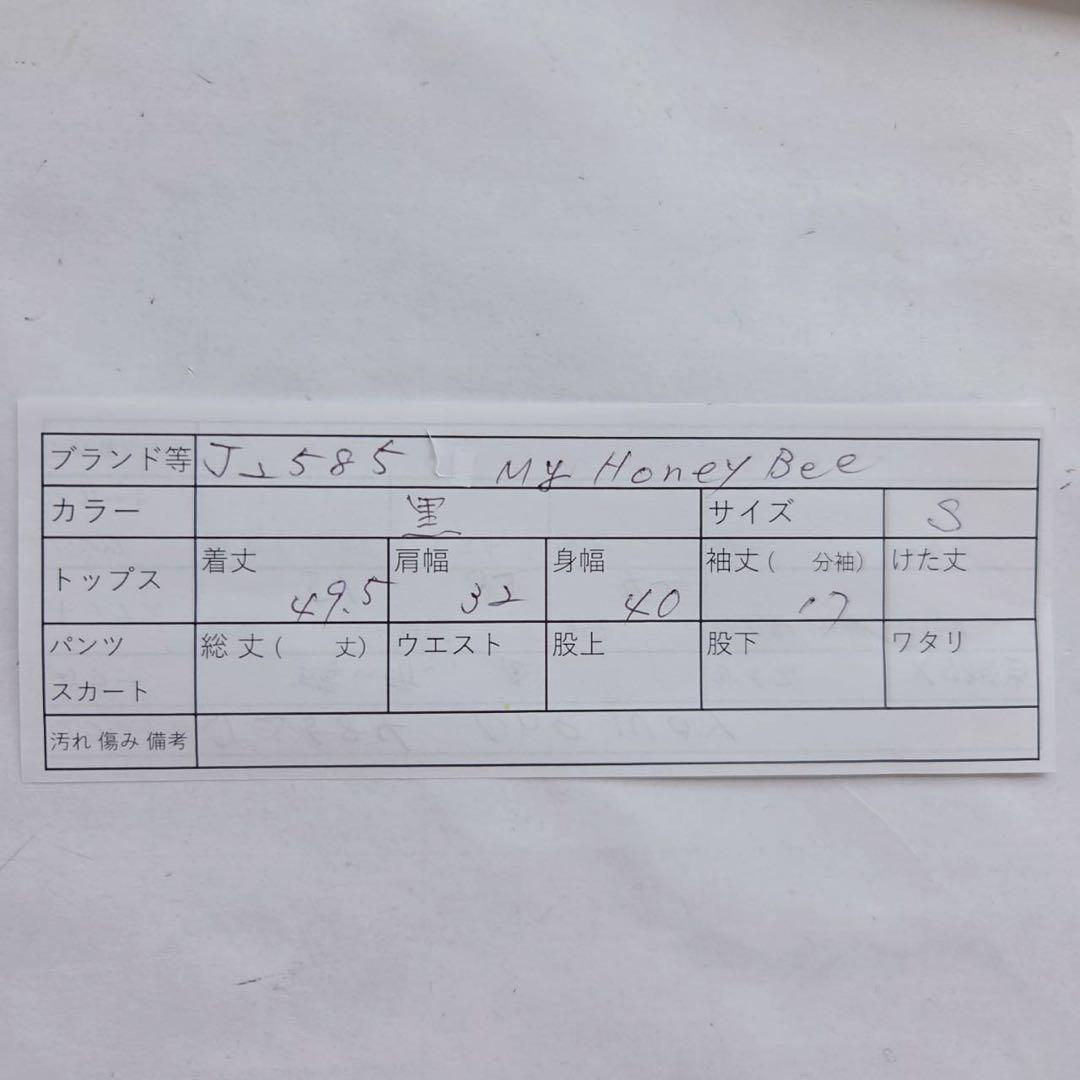 ブランド等 J上585 My Honey Bee
カラー 黒 サイズ S
トップス 着丈 49.5 肩幅 32 身幅 40 袖丈( 分袖) 17 けた丈
パンツ スカート 総丈( 丈) ウエスト 股上 股下 ワタリ
汚れ 傷み 備考